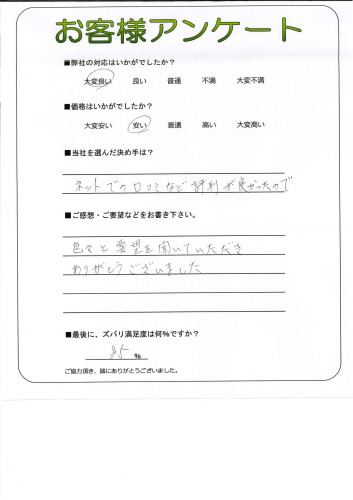 お客様アンケート
■弊社の対応はいかがでしたか？
大変良い 良い 普通 不満 大変不満
■価格はいかがでしたか？
大変安い 安い 普通 高い 大変高い
■当社を選んだ決め手は？
ネットでの口コミなど評判が良かったので
■ご感想・ご要望などをお書き下さい。
色々と要望を聞いていただき
ありがとうございました
■最後に、ズバリ満足度は何％ですか？
85 ％
ご協力頂き、誠にありがとうございました。